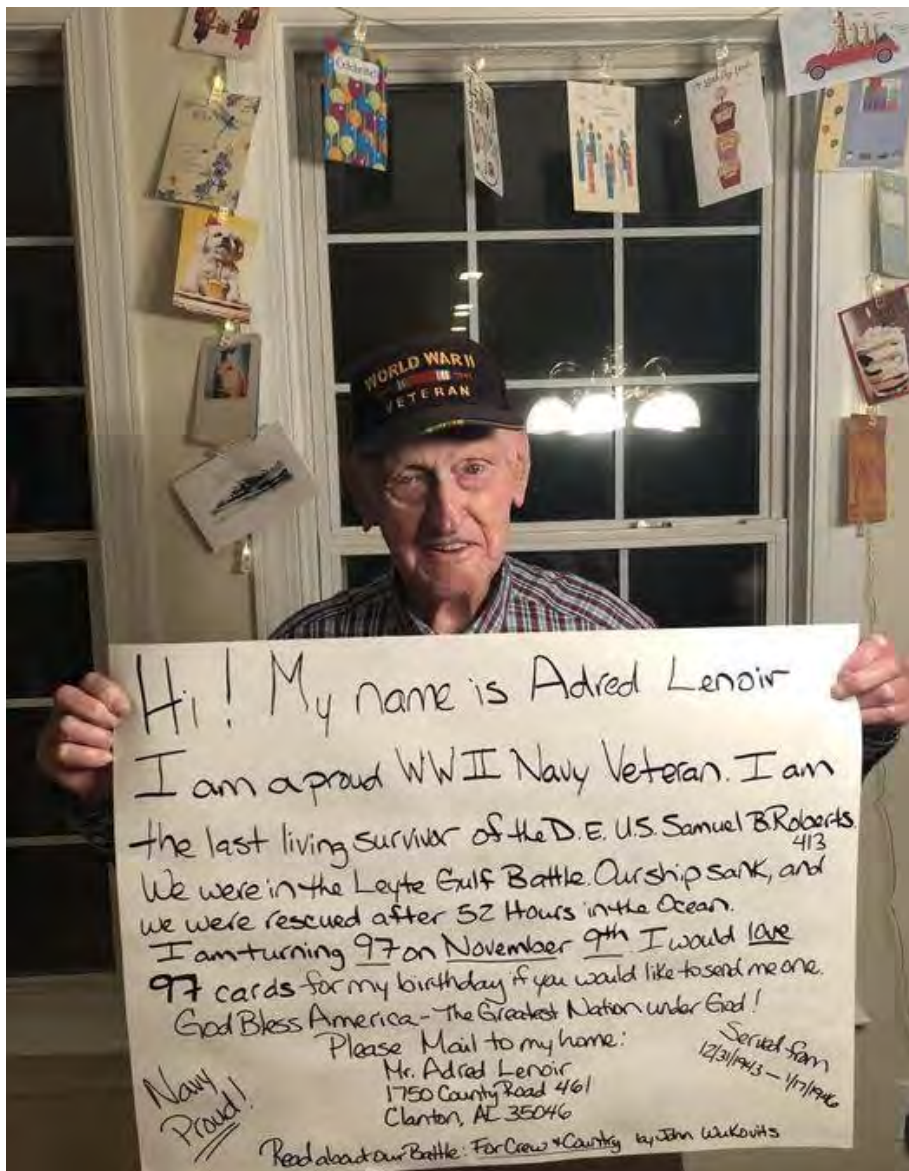 Celebrate!
WORLD WAR II
VETERAN
Hi! My name is Adred Lenoir
I am a proud WWII Navy Veteran. I am
the last living survivor of the D.E. U.S. Samuel B. Roberts.
413
We were in the Leyte Gulf Battle. Our ship sank, and
we were rescued after 52 Hours in the Ocean.
I am turning 97 on November 9th. I would love
97 cards for my birthday if you would like to send me one.
God Bless America - The Greatest Nation under God!
Please Mail to my home:
Mr. Adred Lenoir
1750 County Road 461
Clanton, AL 35046
Served from
12/31/1943 - 1/17/1946
Navy
Proud!
Read about our Battle: For Crew & Country by John Wukovits